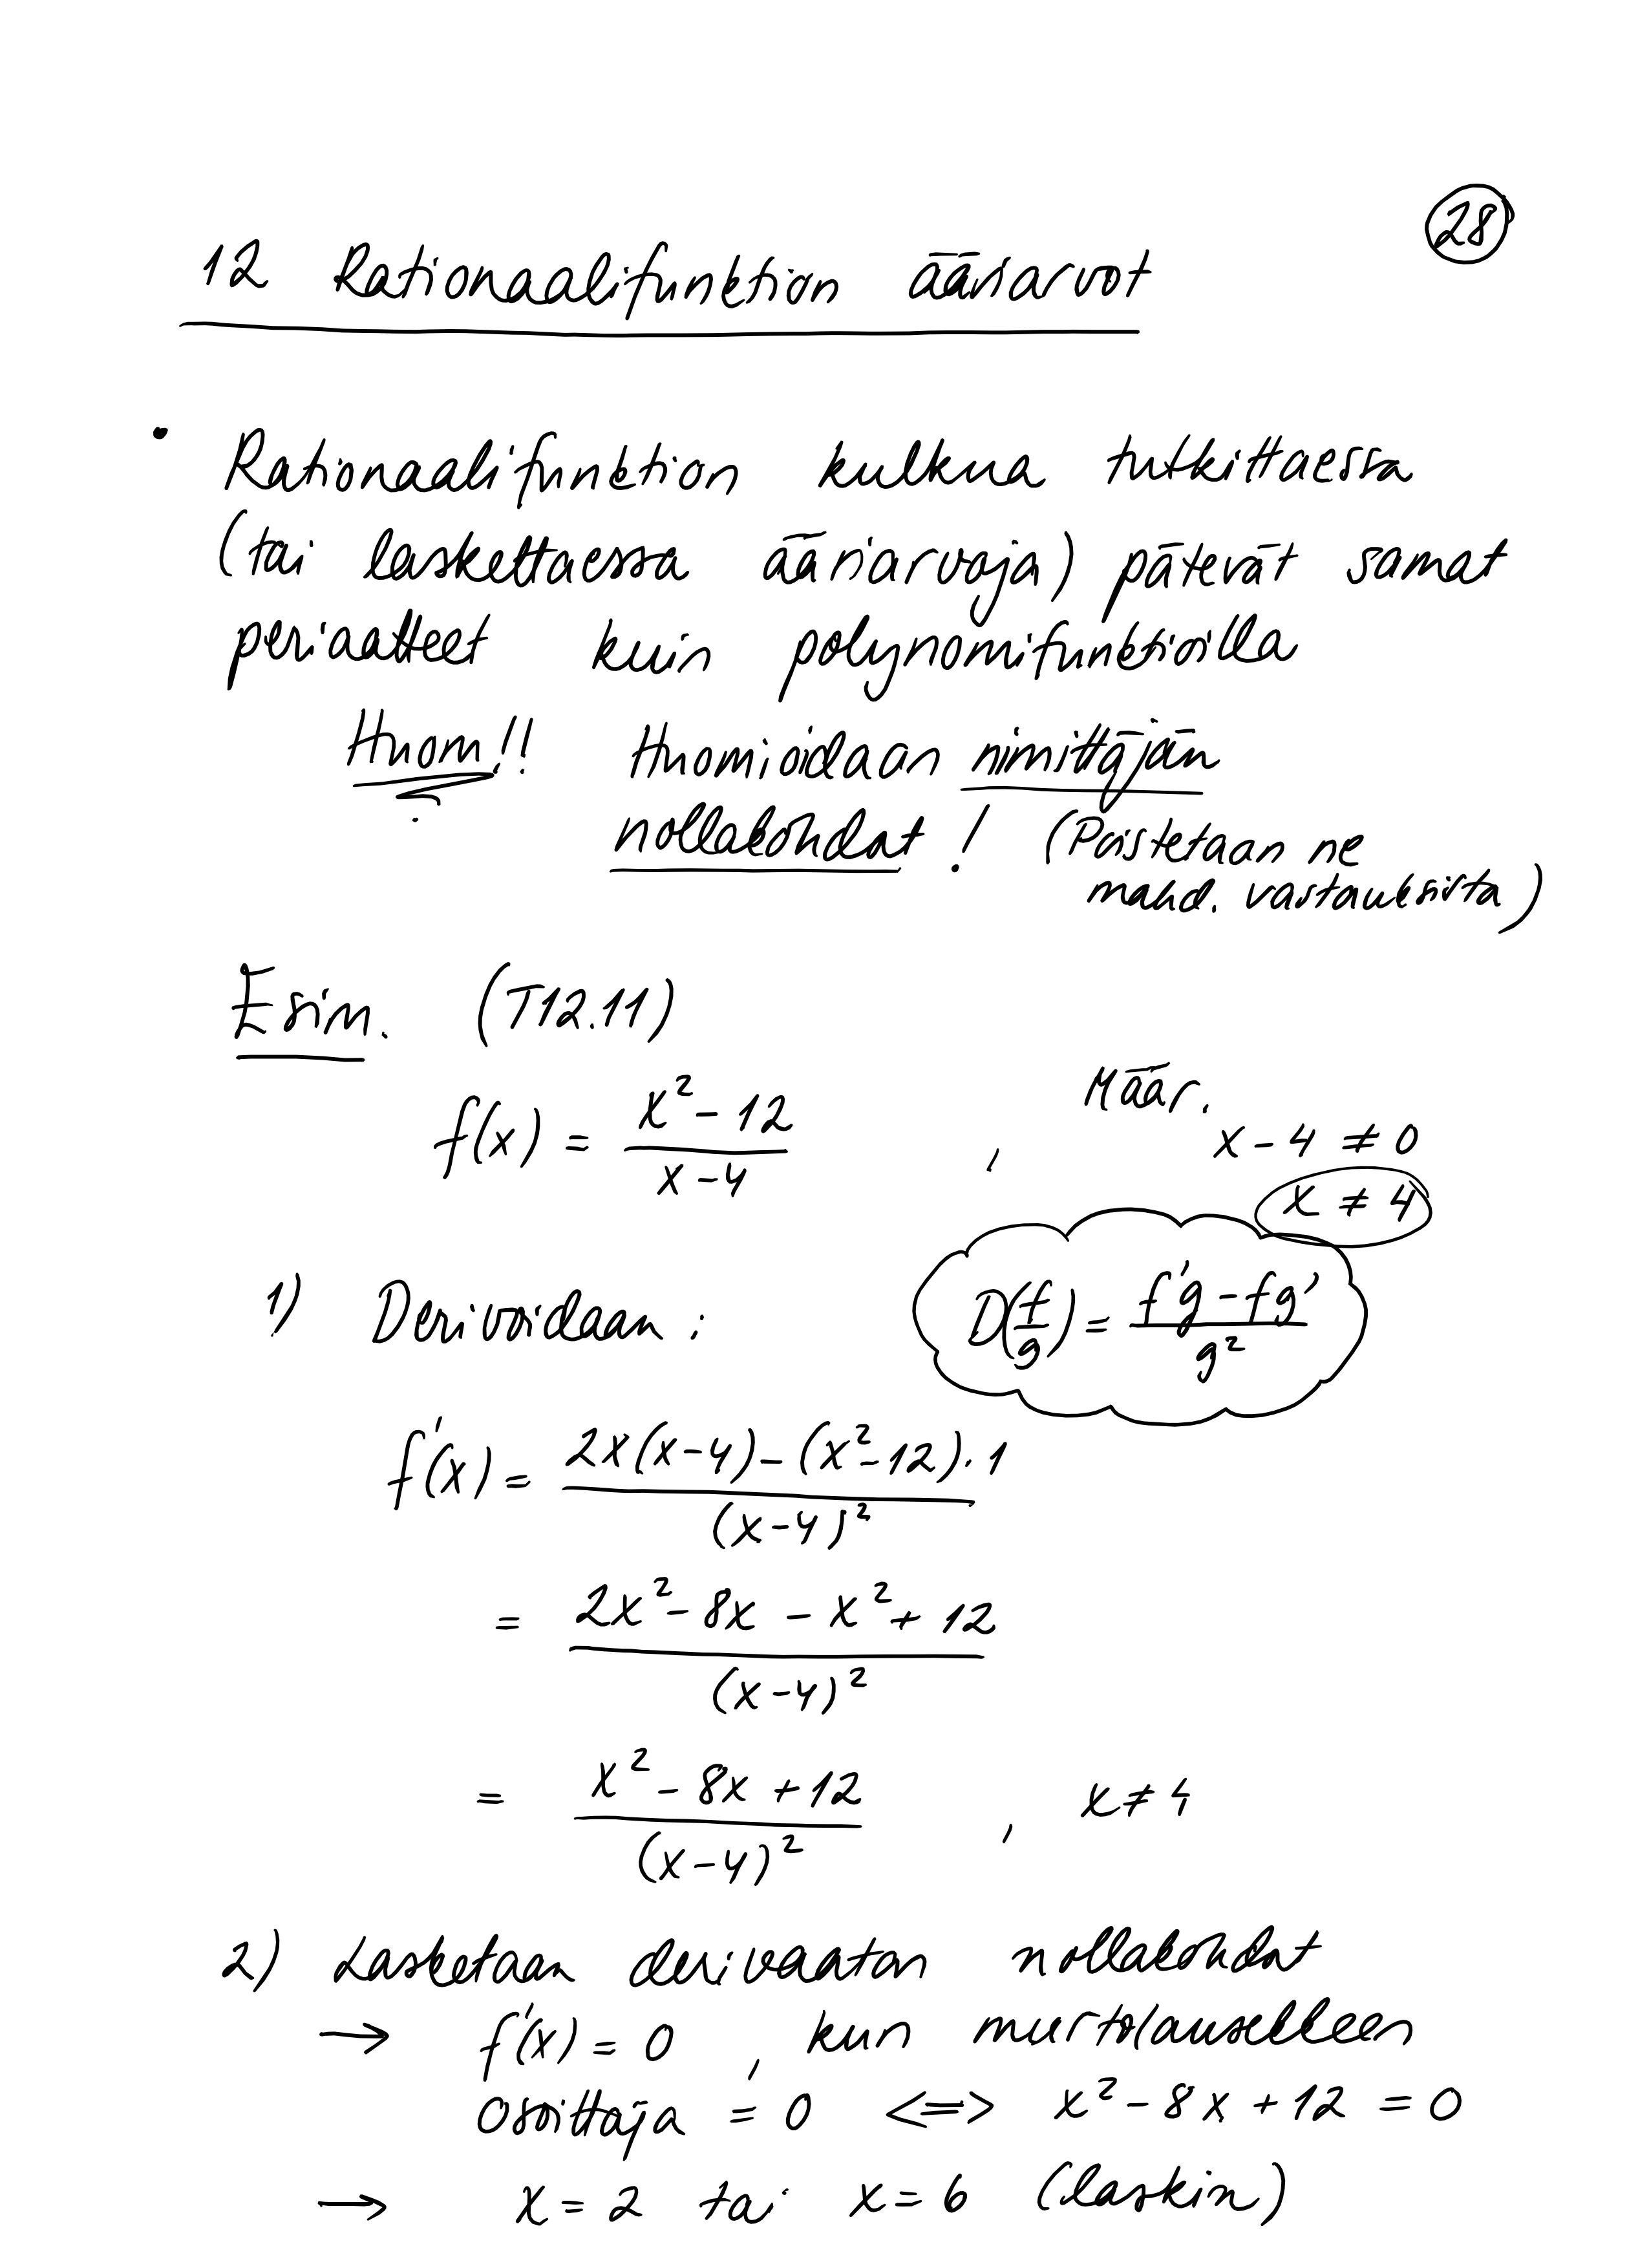 28
12 Rationaalifunktion ääriarvot
• Rationaalifunktion kulkua tutkittaessa
(tai laskettaessa ääriarvoja) pätevät samat
periaatteet kuin polynomifunktioilla
Huom!! Huomioidaan nimittäjän
nollakohdat! (Poistetaan ne
mahd. vastauksista)
Esim. (T12.11)
Määr.
f(x) = (x² - 12)/(x - 4) , x - 4 ≠ 0
x ≠ 4
1) Derivoidaan: D(f/g) = (f'g - fg')/g²
f'(x) = (2x(x-4) - (x²-12)·1)/(x-4)²
= (2x² - 8x - x² + 12)/(x-4)²
= (x² - 8x + 12)/(x-4)² , x ≠ 4
2) Lasketaan derivaatan nollakohdat
→ f'(x) = 0 , kun murtolausekkeen
osoittaja = 0 <=> x² - 8x + 12 = 0
→ x = 2 tai x = 6 (laskin)